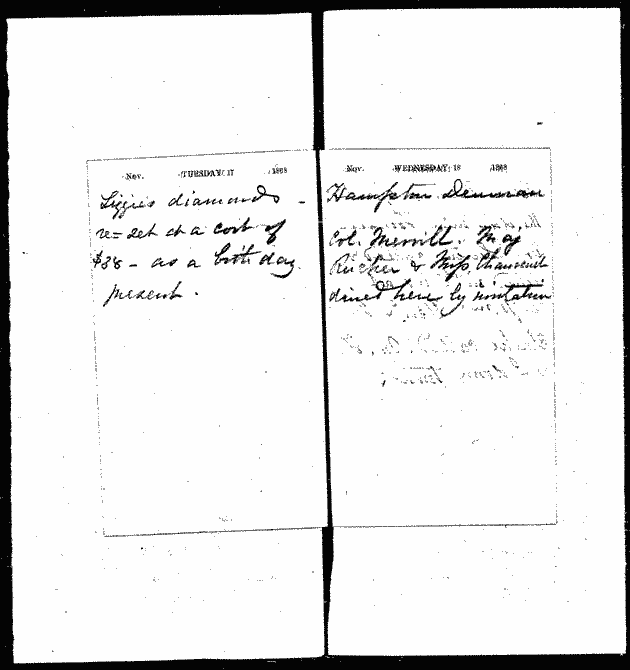 Nov. TUESDAY 17 1868
Lizzie's diamonds -
re=set at a cost of
$38 - as a birth day
present .
Nov. WEDNESDAY 18 1868
Hampton Denman
Col. Merrill. Maj
Rucker & Miss
dined here by invitation